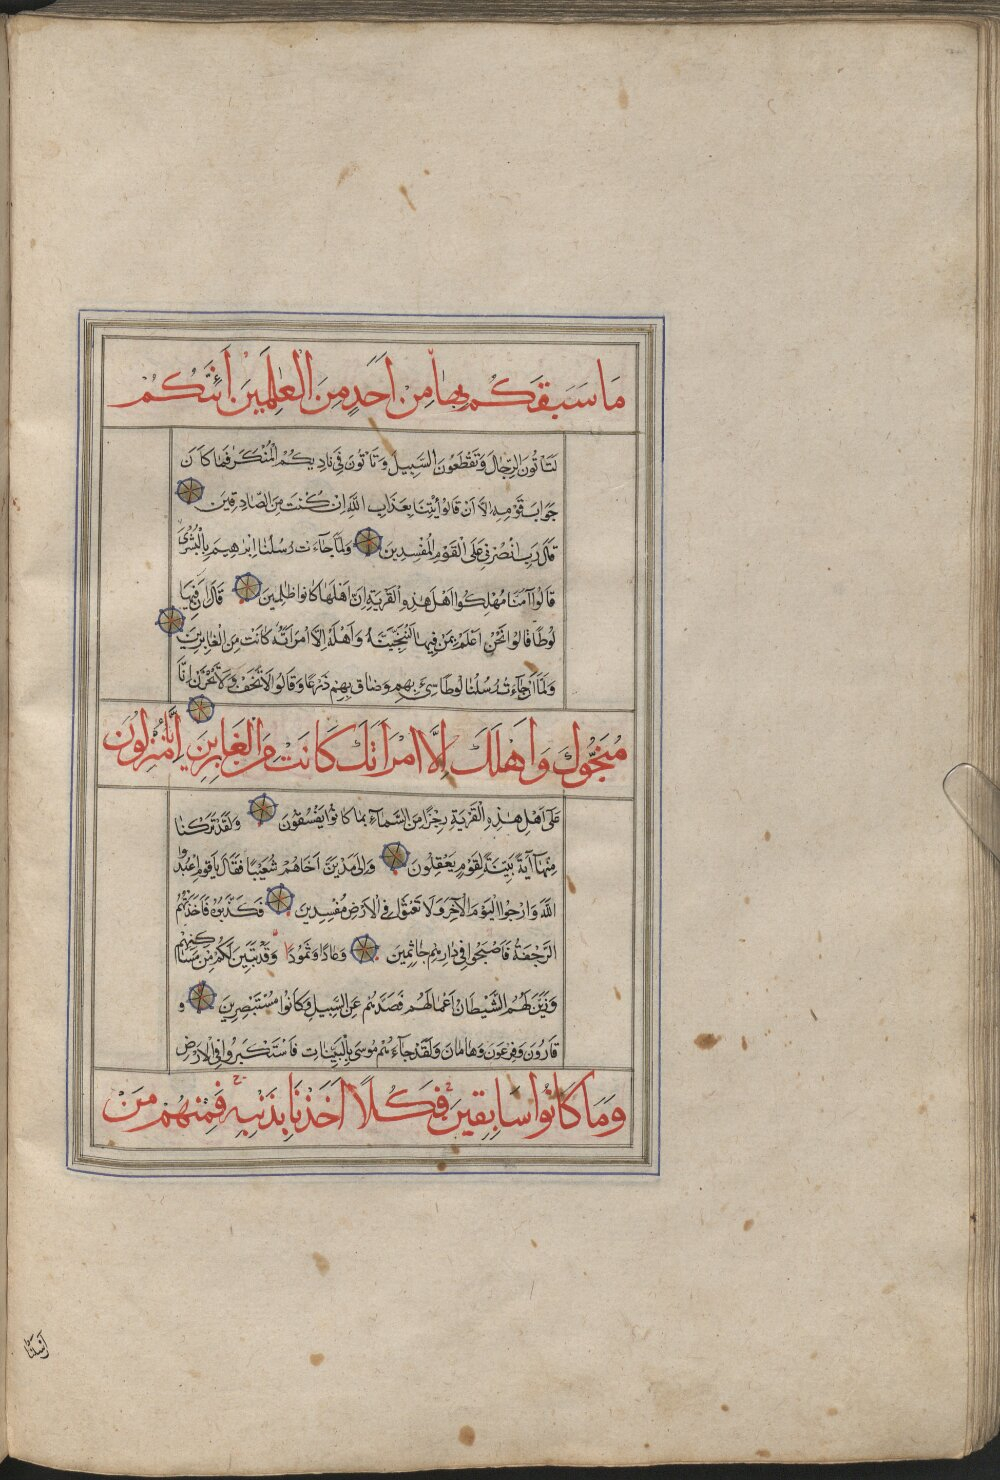 مَا سَبَقَكُمْ بِهَا مِنْ اَحَدٍ مِنَ الْعَالَمِينَ اَئِنَّكُمْ
لَتَاْتُونَ الرِّجَالَ وَتَقْطَعُونَ السَّبِيلَ وَتَاْتُونَ فِى نَادِيكُمُ الْمُنْكَرَ فَمَا كَانَ
جَوَابَ قَوْمِهِ اِلَّا اَنْ قَالُوا ائْتِنَا بِعَذَابِ اللّٰهِ اِنْ كُنْتَ مِنَ الصَّادِقِينَ
قَالَ رَبِّ انْصُرْنِى عَلَى الْقَوْمِ الْمُفْسِدِينَ وَلَمَّا جَآءَتْ رُسُلُنَا اِبْرٰهِيمَ بِالْبُشْرٰى
قَالُوا اِنَّا مُهْلِكُوا اَهْلِ هٰذِهِ الْقَرْيَةِ اِنَّ اَهْلَهَا كَانُوا ظَالِمِينَ قَالَ اِنَّ فِيهَا
لُوطًا قَالُوا نَحْنُ اَعْلَمُ بِمَنْ فِيهَا لَنُنَجِّيَنَّهُ وَاَهْلَهُ اِلَّا امْرَاَتَهُ كَانَتْ مِنَ الْغَابِرِينَ
وَلَمَّا اَنْ جَآءَتْ رُسُلُنَا لُوطًا سِىءَ بِهِمْ وَضَاقَ بِهِمْ ذَرْعًا وَقَالُوا لَا تَخَفْ وَلَا تَحْزَنْ اِنَّا
مُنَجُّوكَ وَاَهْلَكَ اِلَّا امْرَاَتَكَ كَانَتْ مِنَ الْغَابِرِينَ اِنَّا مُنْزِلُونَ
عَلٰى اَهْلِ هٰذِهِ الْقَرْيَةِ رِجْزًا مِنَ السَّمَآءِ بِمَا كَانُوا يَفْسُقُونَ وَلَقَدْ تَرَكْنَا
مِنْهَا آيَةً بَيِّنَةً لِقَوْمٍ يَعْقِلُونَ وَاِلٰى مَدْيَنَ اَخَاهُمْ شُعَيْبًا فَقَالَ يَاقَوْمِ اعْبُدُوا
اللّٰهَ وَارْجُوا الْيَوْمَ الْآخِرَ وَلَا تَعْثَوْا فِى الْاَرْضِ مُفْسِدِينَ فَكَذَّبُوهُ فَاَخَذَتْهُمُ
الرَّجْفَةُ فَاَصْبَحُوا فِى دَارِهِمْ جَاثِمِينَ وَعَادًا وَثَمُودَا وَقَدْ تَبَيَّنَ لَكُمْ مِنْ مَسَاكِنِهِمْ
وَزَيَّنَ لَهُمُ الشَّيْطَانُ اَعْمَالَهُمْ فَصَدَّهُمْ عَنِ السَّبِيلِ وَكَانُوا مُسْتَبْصِرِينَ وَ
قَارُونَ وَفِرْعَوْنَ وَهَامَانَ وَلَقَدْ جَآءَهُمْ مُوسٰى بِالْبَيِّنَاتِ فَاسْتَكْبَرُوا فِى الْاَرْضِ
وَمَا كَانُوا سَابِقِينَ فَكُلًّا اَخَذْنَا بِذَنْبِهِ فَمِنْهُمْ مَنْ
اَرْسَلْنَا